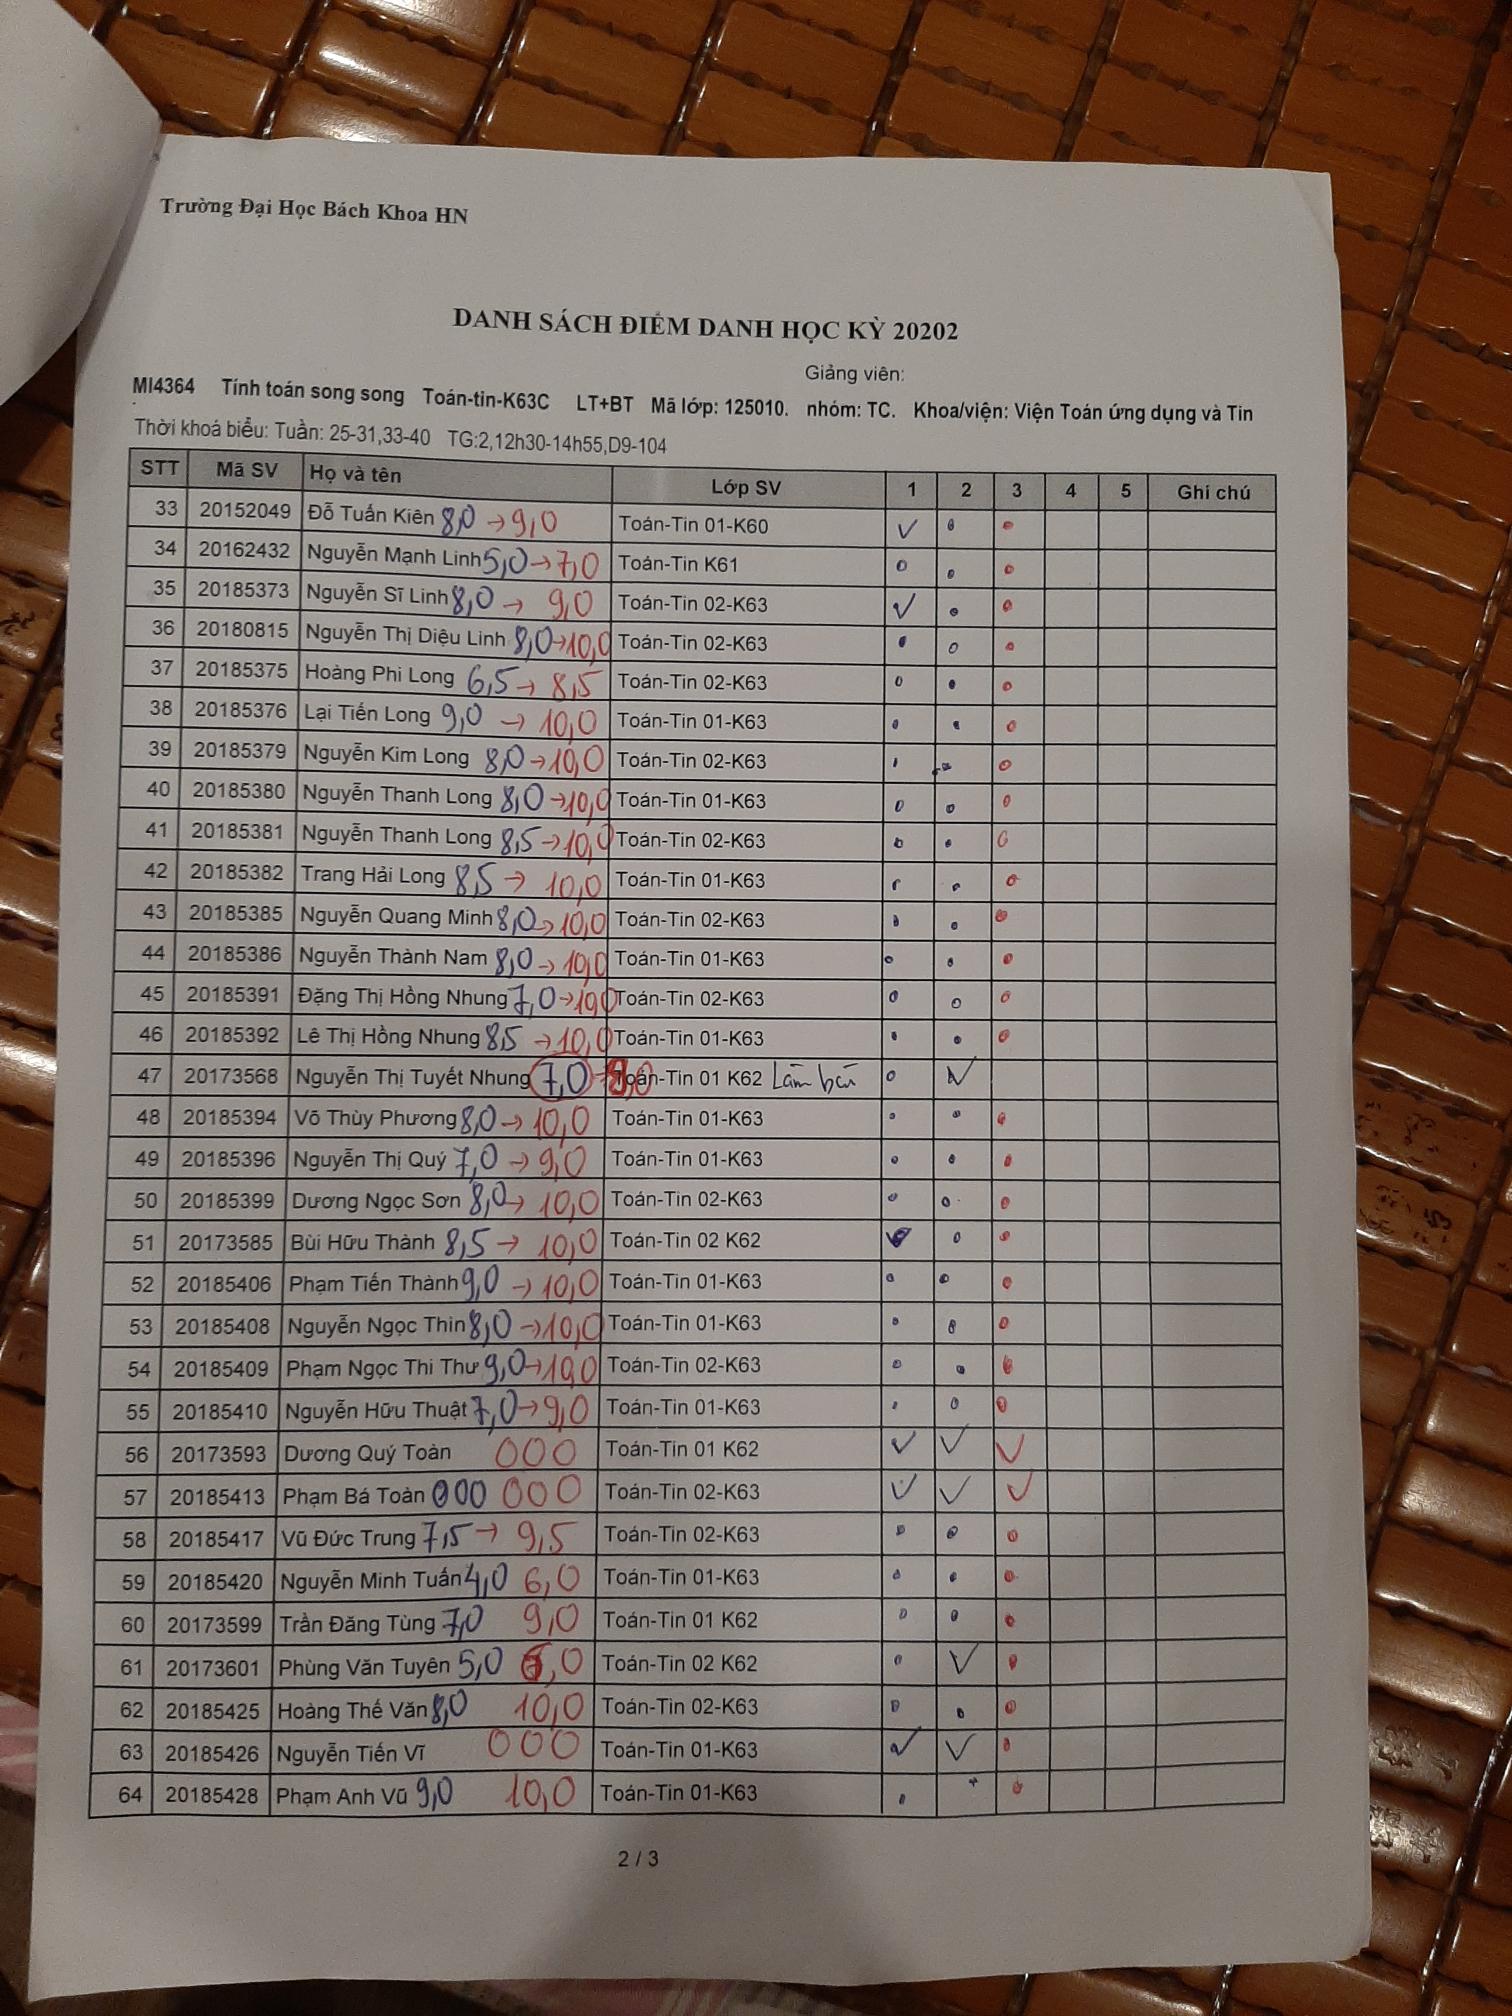 Trường Đại Học Bách Khoa HN
DANH SÁCH ĐIỂM DANH HỌC KỲ 20202
Giảng viên:
MI4364 Tính toán song song Toán-tin-K63C LT+BT Mã lớp: 125010. nhóm: TC. Khoa/viện: Viện Toán ứng dụng và Tin
Thời khoá biểu: Tuần: 25-31,33-40 TG:2,12h30-14h55,D9-104
STT Mã SV Họ và tên Lớp SV 1 2 3 4 5 Ghi chú
33 20152049 Đỗ Tuấn Kiên 8,0 → 9,0 Toán-Tin 01-K60
34 20162432 Nguyễn Mạnh Linh 5,0 → 7,0 Toán-Tin K61
35 20185373 Nguyễn Sĩ Linh 8,0 → 9,0 Toán-Tin 02-K63
36 20180815 Nguyễn Thị Diệu Linh 8,0 → 10,0 Toán-Tin 02-K63
37 20185375 Hoàng Phi Long 6,5 → 8,5 Toán-Tin 02-K63
38 20185376 Lại Tiến Long 9,0 → 10,0 Toán-Tin 01-K63
39 20185379 Nguyễn Kim Long 8,0 → 10,0 Toán-Tin 02-K63
40 20185380 Nguyễn Thanh Long 8,0 → 10,0 Toán-Tin 01-K63
41 20185381 Nguyễn Thanh Long 8,5 → 10,0 Toán-Tin 02-K63
42 20185382 Trang Hải Long 8,5 → 10,0 Toán-Tin 01-K63
43 20185385 Nguyễn Quang Minh 8,0 → 10,0 Toán-Tin 02-K63
44 20185386 Nguyễn Thành Nam 8,0 → 10,0 Toán-Tin 01-K63
45 20185391 Đặng Thị Hồng Nhung 7,0 → 10,0 Toán-Tin 02-K63
46 20185392 Lê Thị Hồng Nhung 8,5 → 10,0 Toán-Tin 01-K63
47 20173568 Nguyễn Thị Tuyết Nhung 7,0 Toán-Tin 01 K62
48 20185394 Võ Thùy Phương 8,0 → 10,0 Toán-Tin 01-K63
49 20185396 Nguyễn Thị Quý 7,0 → 9,0 Toán-Tin 01-K63
50 20185399 Dương Ngọc Sơn 8,0 → 10,0 Toán-Tin 02-K63
51 20173585 Bùi Hữu Thành 8,5 → 10,0 Toán-Tin 02 K62
52 20185406 Phạm Tiến Thành 9,0 → 10,0 Toán-Tin 01-K63
53 20185408 Nguyễn Ngọc Thìn 8,0 → 10,0 Toán-Tin 01-K63
54 20185409 Phạm Ngọc Thi Thư 9,0 → 10,0 Toán-Tin 02-K63
55 20185410 Nguyễn Hữu Thuật 7,0 → 9,0 Toán-Tin 01-K63
56 20173593 Dương Quý Toàn 000 Toán-Tin 01 K62
57 20185413 Phạm Bá Toản 000 000 Toán-Tin 02-K63
58 20185417 Vũ Đức Trung 7,5 → 9,5 Toán-Tin 02-K63
59 20185420 Nguyễn Minh Tuấn 4,0 6,0 Toán-Tin 01-K63
60 20173599 Trần Đăng Tùng 7,0 9,0 Toán-Tin 01 K62
61 20173601 Phùng Văn Tuyên 5,0 Toán-Tin 02 K62
62 20185425 Hoàng Thế Văn 8,0 10,0 Toán-Tin 02-K63
63 20185426 Nguyễn Tiến Vĩ 000 Toán-Tin 01-K63
64 20185428 Phạm Anh Vũ 9,0 10,0 Toán-Tin 01-K63
2 / 3